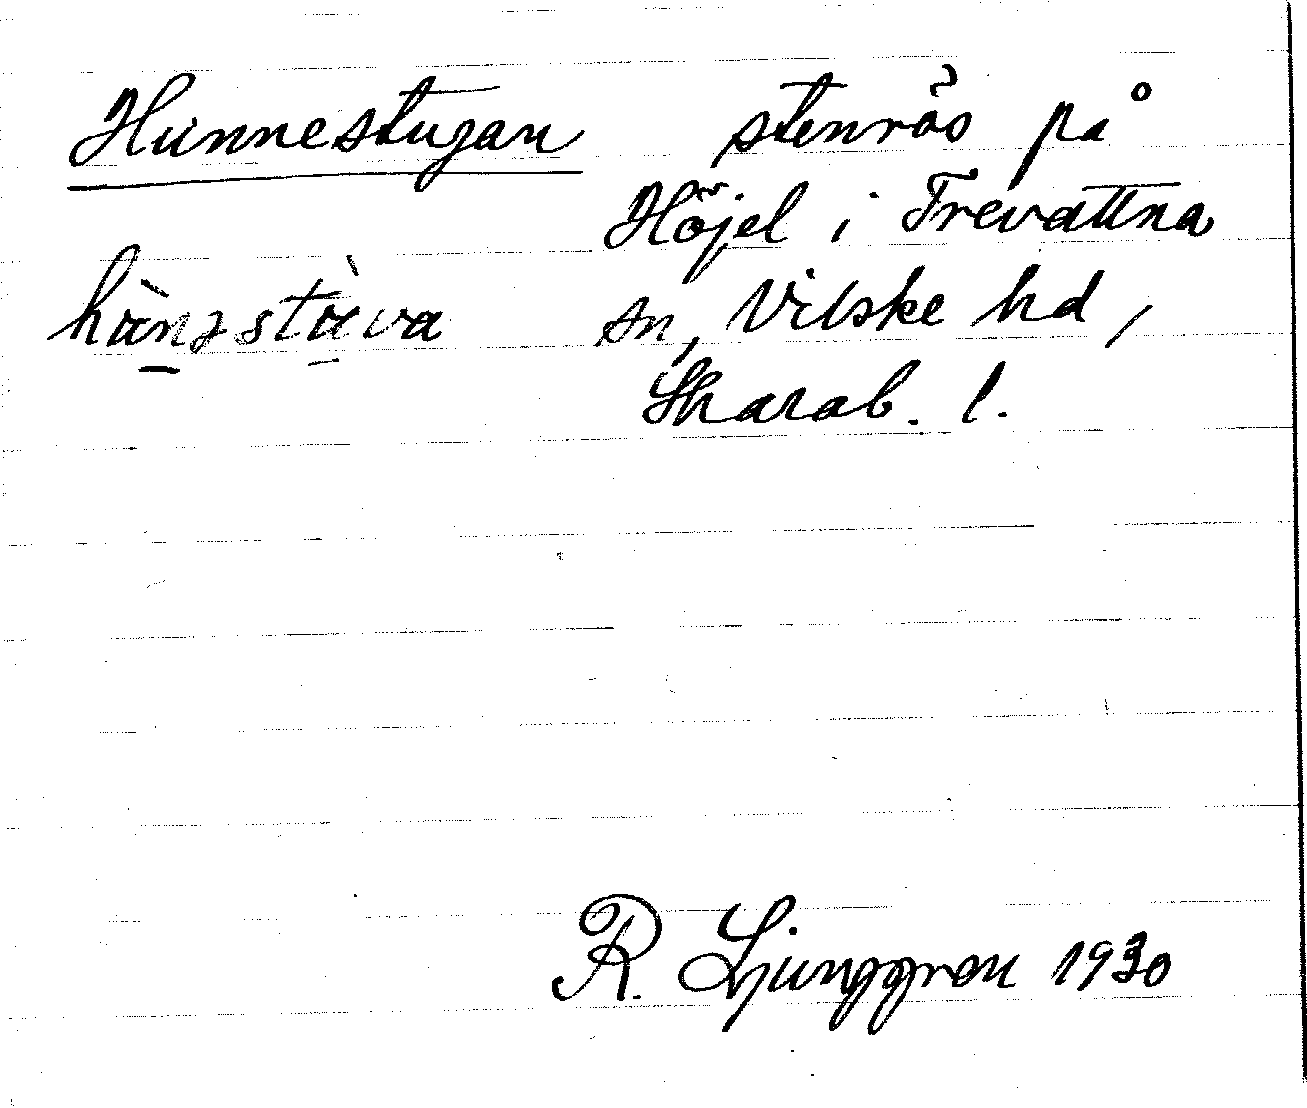 Hunnestugan stenrös på
Höjel i Trevattna
hànəstàva sn, Vilske hd,
Skarab. l.
R. Ljunggren 1930